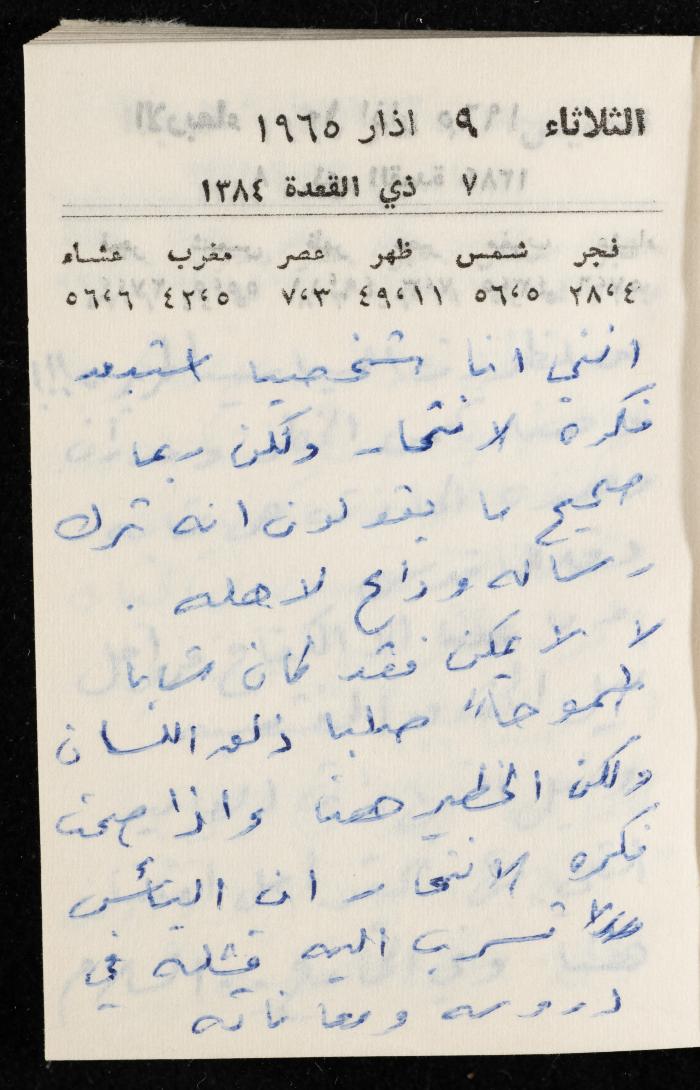 الثلاثاء ٩ اذار ١٩٦٥
٧ ذي القعدة ١٣٨٤
فجر شمس ظهر عصر مغرب عشاء
٢٨،٤ ٥٦،٥ ٤٩،١١ ٧،٣ ٤٢،٥ ٥٦،٦
انني انا شخصيا استبعد
فكره الانتحار ولكن ربما
صحيح ما يقولون انه ترك
رساله وداع لاهله .
لا لا يمكن فقد كان شابا
طموحاً صلبا ذلق اللسان
ولكن الخطير هنا واذا صحت
فكره الانتحار ان اليأس
تسرب اليه فشله في
دروسه ومعاناته